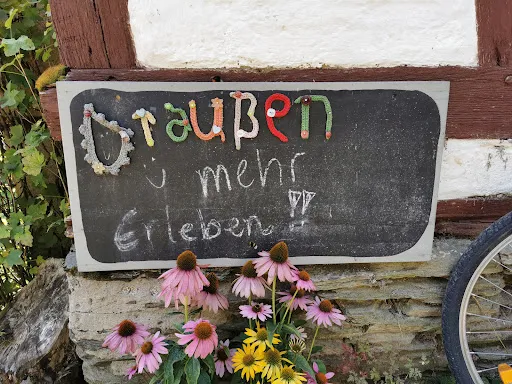 Draußen
mehr
Erleben!!